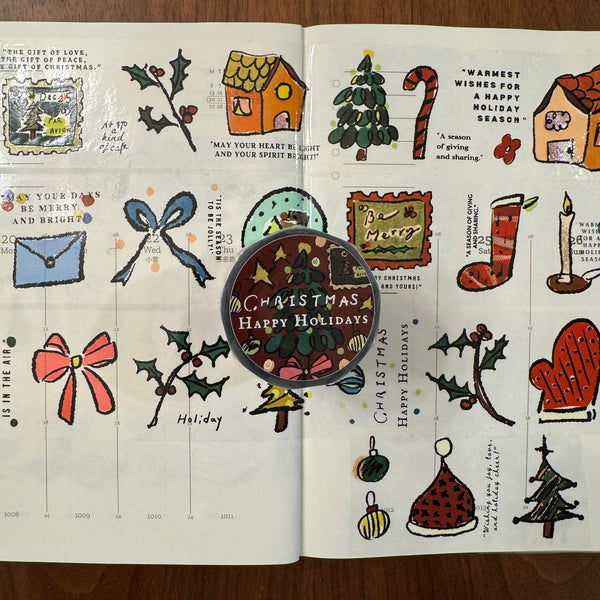 "THE GIFT OF LOVE,
THE GIFT OF PEACE,
THE GIFT OF CHRISTMAS."
DEC.
PAR
AVION
kind
of life
M T
"MAY YOUR HEART BE LIGHT
AND YOUR SPIRIT BRIGHT!"
"WARMEST
WISHES FOR
A HAPPY
HOLIDAY
SEASON"
"A season
of giving
and sharing."
MAY YOUR DAYS
BE MERRY
AND BRIGHT
'TIS THE SEASON
TO BE JOLLY!
20
Mon
22
Wed
小雪
23
Thu
Be
Merry
MY CHRISTMAS
AND YOURS!"
"A SEASON OF GIVING
AND SHARING."
25
Sat
26
WARMEST
WISHES
FOR A
HAPPY
HOLIDAY
CHRISTMAS
HAPPY HOLIDAYS
IS IN THE AIR
Holiday
CHRISTMAS
HAPPY HOLIDAYS
"Wishing you joy, love,
and holiday cheer!"
1008
1009
1010
1011
1012